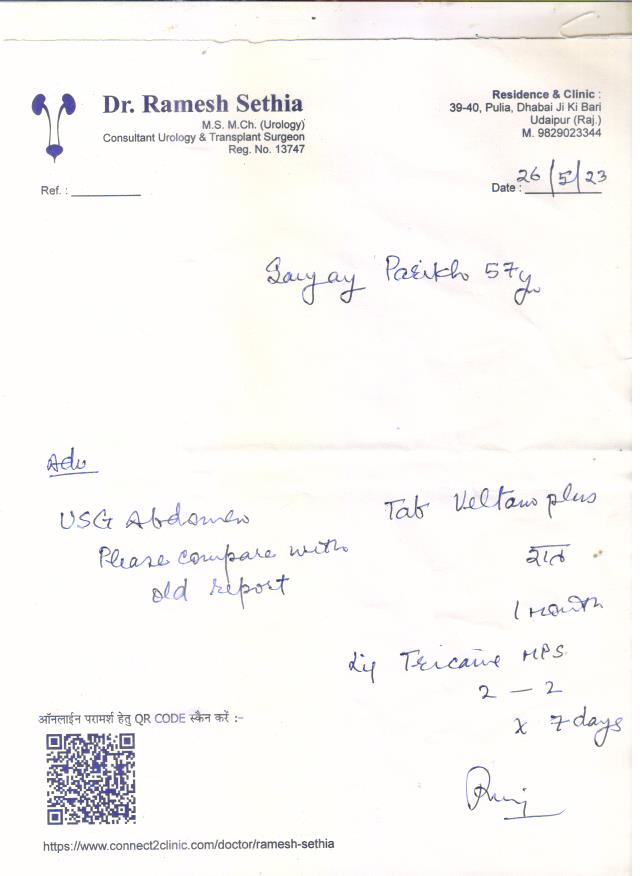 Dr. Ramesh Sethia
M.S. M.Ch. (Urology)
Consultant Urology & Transplant Surgeon
Reg. No. 13747
Residence & Clinic :
39-40, Pulia, Dhabai Ji Ki Bari
Udaipur (Raj.)
M. 9829023344
Ref. :
Date : 26/5/23
Parikh 57y
Adv
USG Abdomen
Please compare with
old report
Tab Veltam plus
रात
1 month
Tricaine MPS
2 - 2
x 7 days
ऑनलाईन परामर्श हेतु QR CODE स्कैन करें :-
https://www.connect2clinic.com/doctor/ramesh-sethia